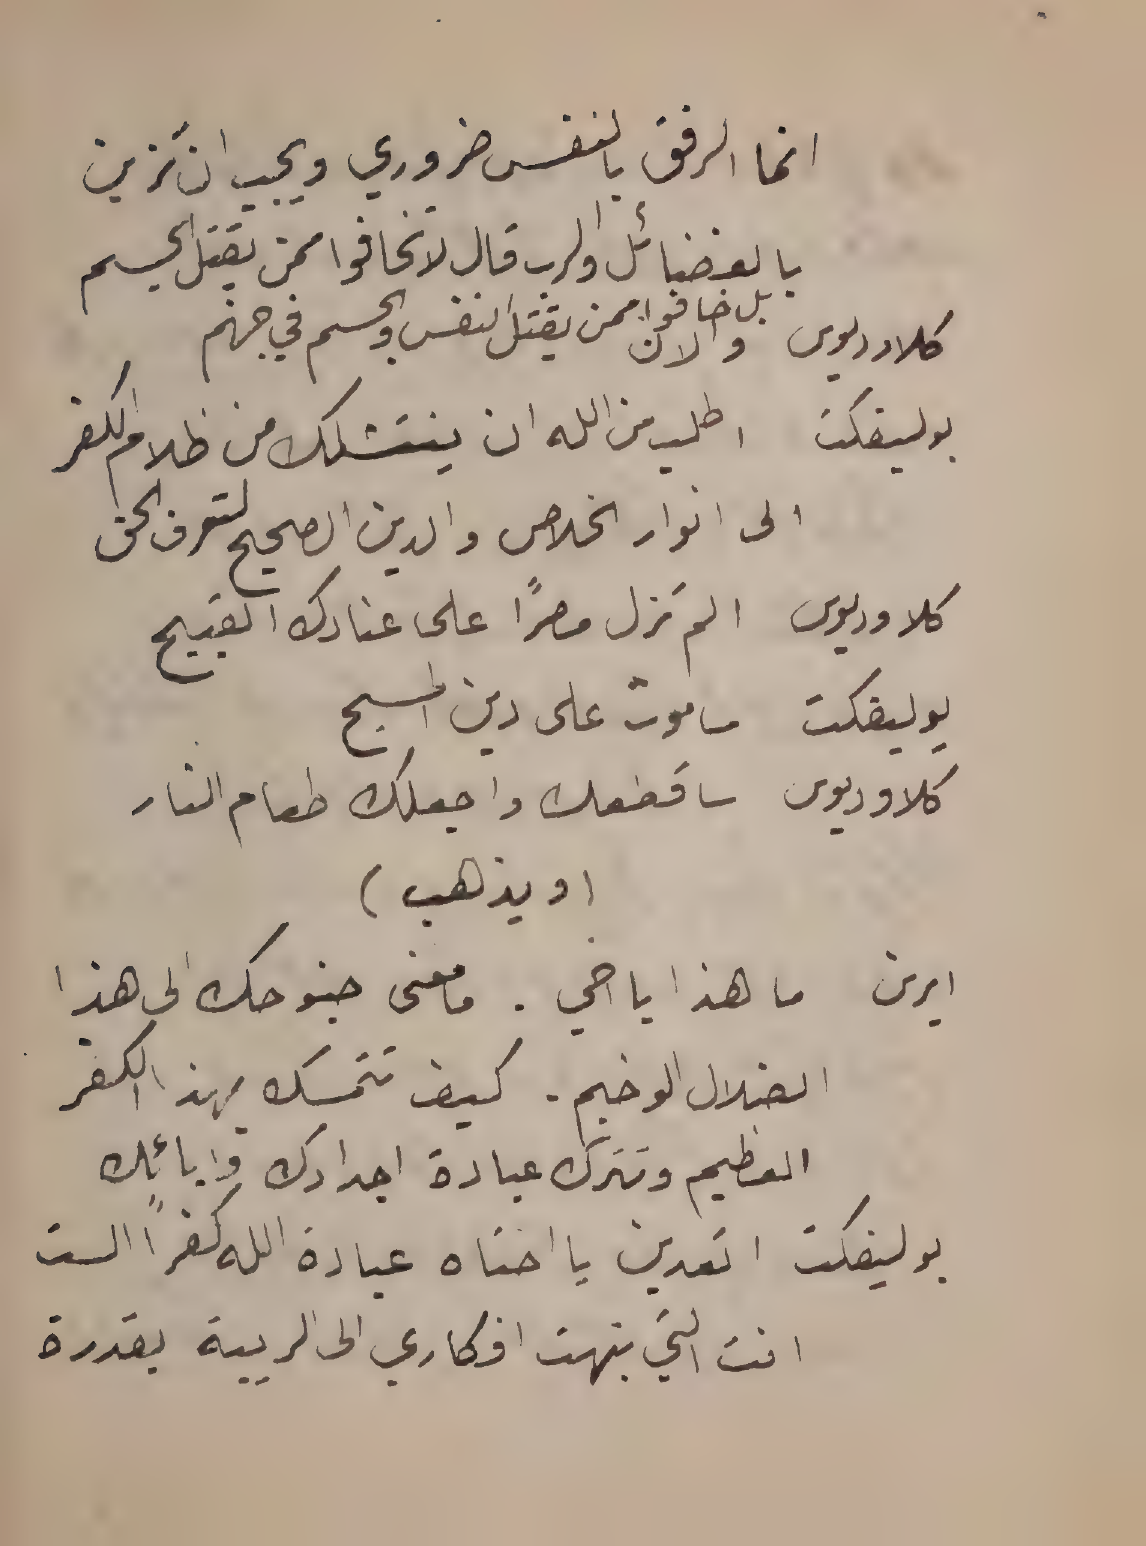 انما الرفق بالنفس ضروري ويجب ان تزين
بالفضائل والرب قال لا تخافوا ممن يقتل الجسم
بل خافوا ممن يقتل النفس والجسم في جهنم
كلاوديوس والان
بوليفكت اطلب من الله ان ينتشلك من ظلام الكفر
الى انوار الخلاص والدين الصحيح لتعرف الحق
كلاوديوس الم تزل مصرًا على عنادك القبيح
بوليفكت ساموت على دين المسيح
كلاوديوس ساقطعك واجعلك طعام النار
(ويذهب)
ايرين ما هذا يا اخي . ما معنى جنوحك الى هذا
الضلال الوخيم . كيف تتمسك بهذا الكفر
العظيم وتترك عبادة اجدادك وابائك
بوليفكت اتعدين يا اختاه عبادة الله كفرًا الست
انت التي نبهت افكاري الى الريبة بقدرة